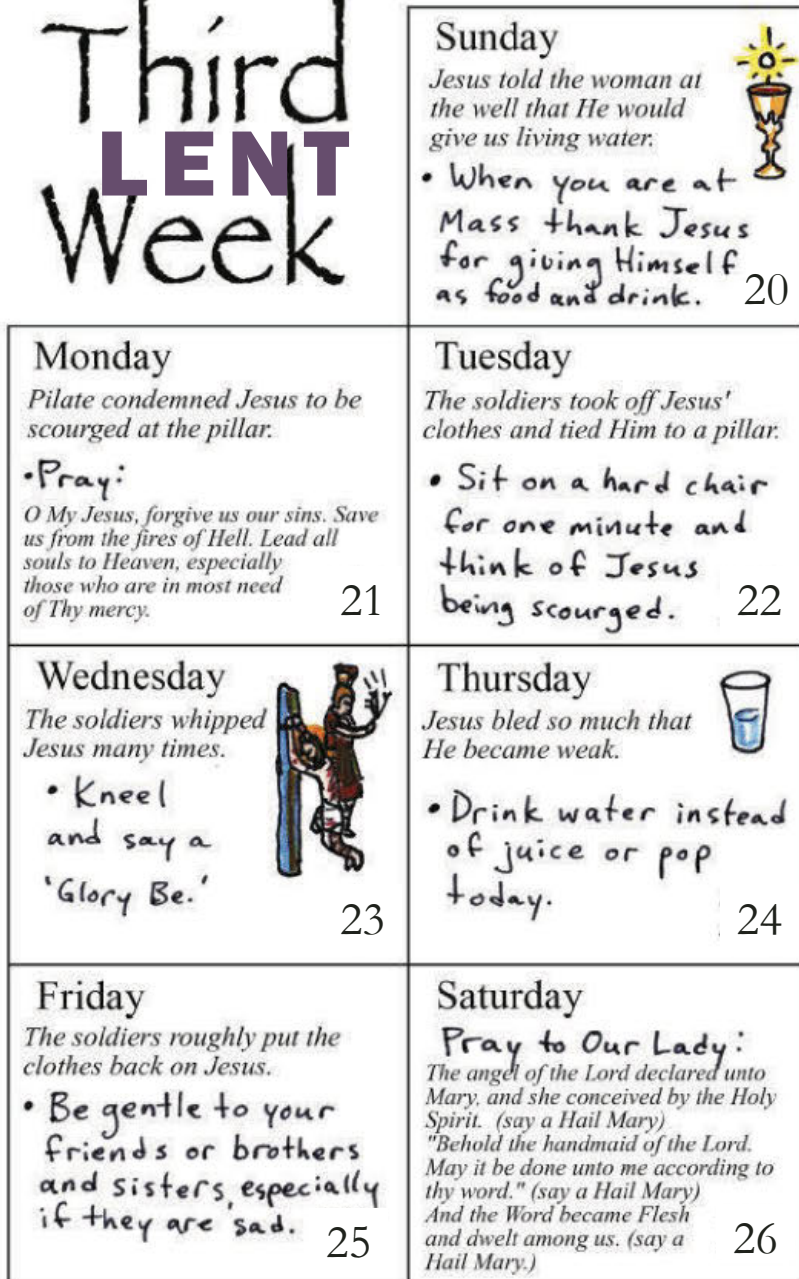 Third
LENT
Week
Sunday
Jesus told the woman at
the well that He would
give us living water.
• When you are at
Mass thank Jesus
for giving Himself
as food and drink.
20
Monday
Pilate condemned Jesus to be
scourged at the pillar.
•Pray:
O My Jesus, forgive us our sins. Save
us from the fires of Hell. Lead all
souls to Heaven, especially
those who are in most need
of Thy mercy.
21
Tuesday
The soldiers took off Jesus'
clothes and tied Him to a pillar.
• Sit on a hard chair
for one minute and
think of Jesus
being scourged.
22
Wednesday
The soldiers whipped
Jesus many times.
• Kneel
and say a
'Glory Be.'
23
Thursday
Jesus bled so much that
He became weak.
• Drink water instead
of juice or pop
today.
24
Friday
The soldiers roughly put the
clothes back on Jesus.
• Be gentle to your
friends or brothers
and sisters, especially
if they are sad.
25
Saturday
Pray to Our Lady:
The angel of the Lord declared unto
Mary, and she conceived by the Holy
Spirit. (say a Hail Mary)
"Behold the handmaid of the Lord.
May it be done unto me according to
thy word." (say a Hail Mary)
And the Word became Flesh
and dwelt among us. (say a
Hail Mary.)
26